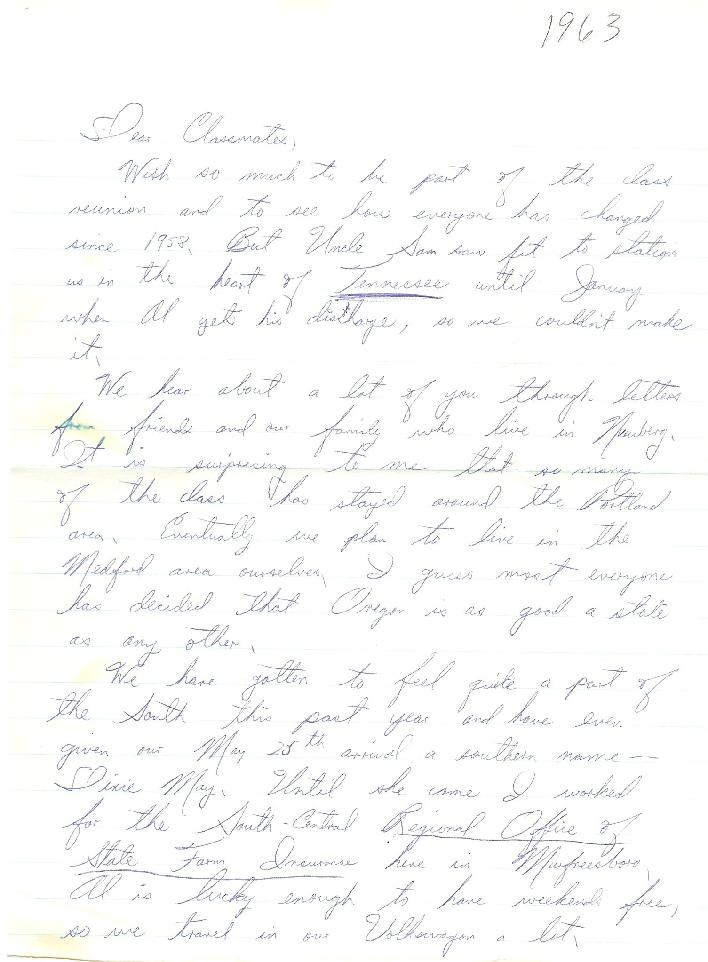 1963
Dear Classmates,
Wish so much to be part of the class
reunion and to see how everyone has changed
since 1958. But Uncle Sam saw fit to station
us in the heart of Tennessee until January
when Al gets his discharge, so we couldn't make
it.
We hear about a lot of you through letters
from friends and our family who live in Newberg.
It is surprising to me that so many
of the class has stayed around the Portland
area. Eventually we plan to live in the
Medford area ourselves. I guess most everyone
has decided that Oregon is as good a state
as any other.
We have gotten to feel quite a part of
the South this past year and have even
given our May 25th arrival a southern name--
Dixie May. Until she came I worked
for the South-Central Regional Office of
State Farm Insurance here in Murfreesboro.
Al is lucky enough to have weekends free,
so we travel in our Volkswagon a lot.